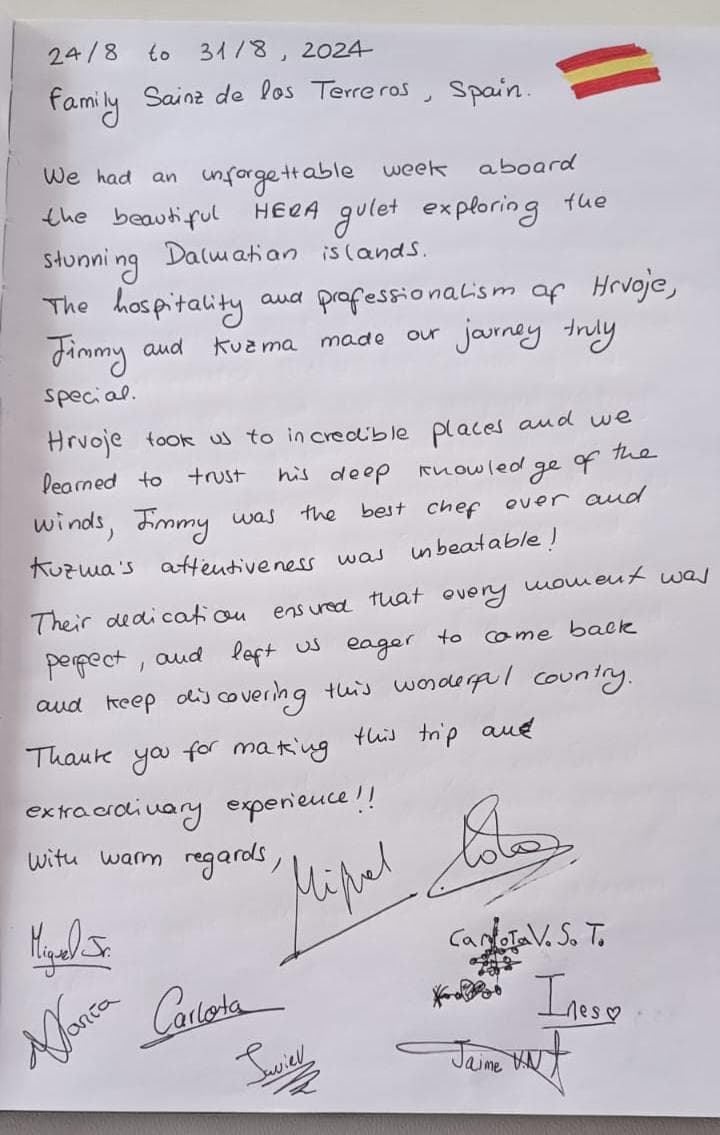 24/8 to 31/8, 2024
Family Sainz de los Terreros, Spain.
We had an unforgettable week aboard
the beautiful HERA gulet exploring the
stunning Dalmatian islands.
The hospitality and professionalism of Hrvoje,
Jimmy and Kuzma made our journey truly
special.
Hrvoje took us to incredible places and we
learned to trust his deep knowledge of the
winds, Jimmy was the best chef ever and
Kuzma's attentiveness was unbeatable!
Their dedication ensured that every moment was
perfect, and left us eager to come back
and keep discovering this wonderful country.
Thank you for making this trip and
extraordinary experience!!
With warm regards,
Miguel
Miguel Jr.
Carlota V. S. T.
María
Carlota
Ines ♡
Javier
Jaime V.N